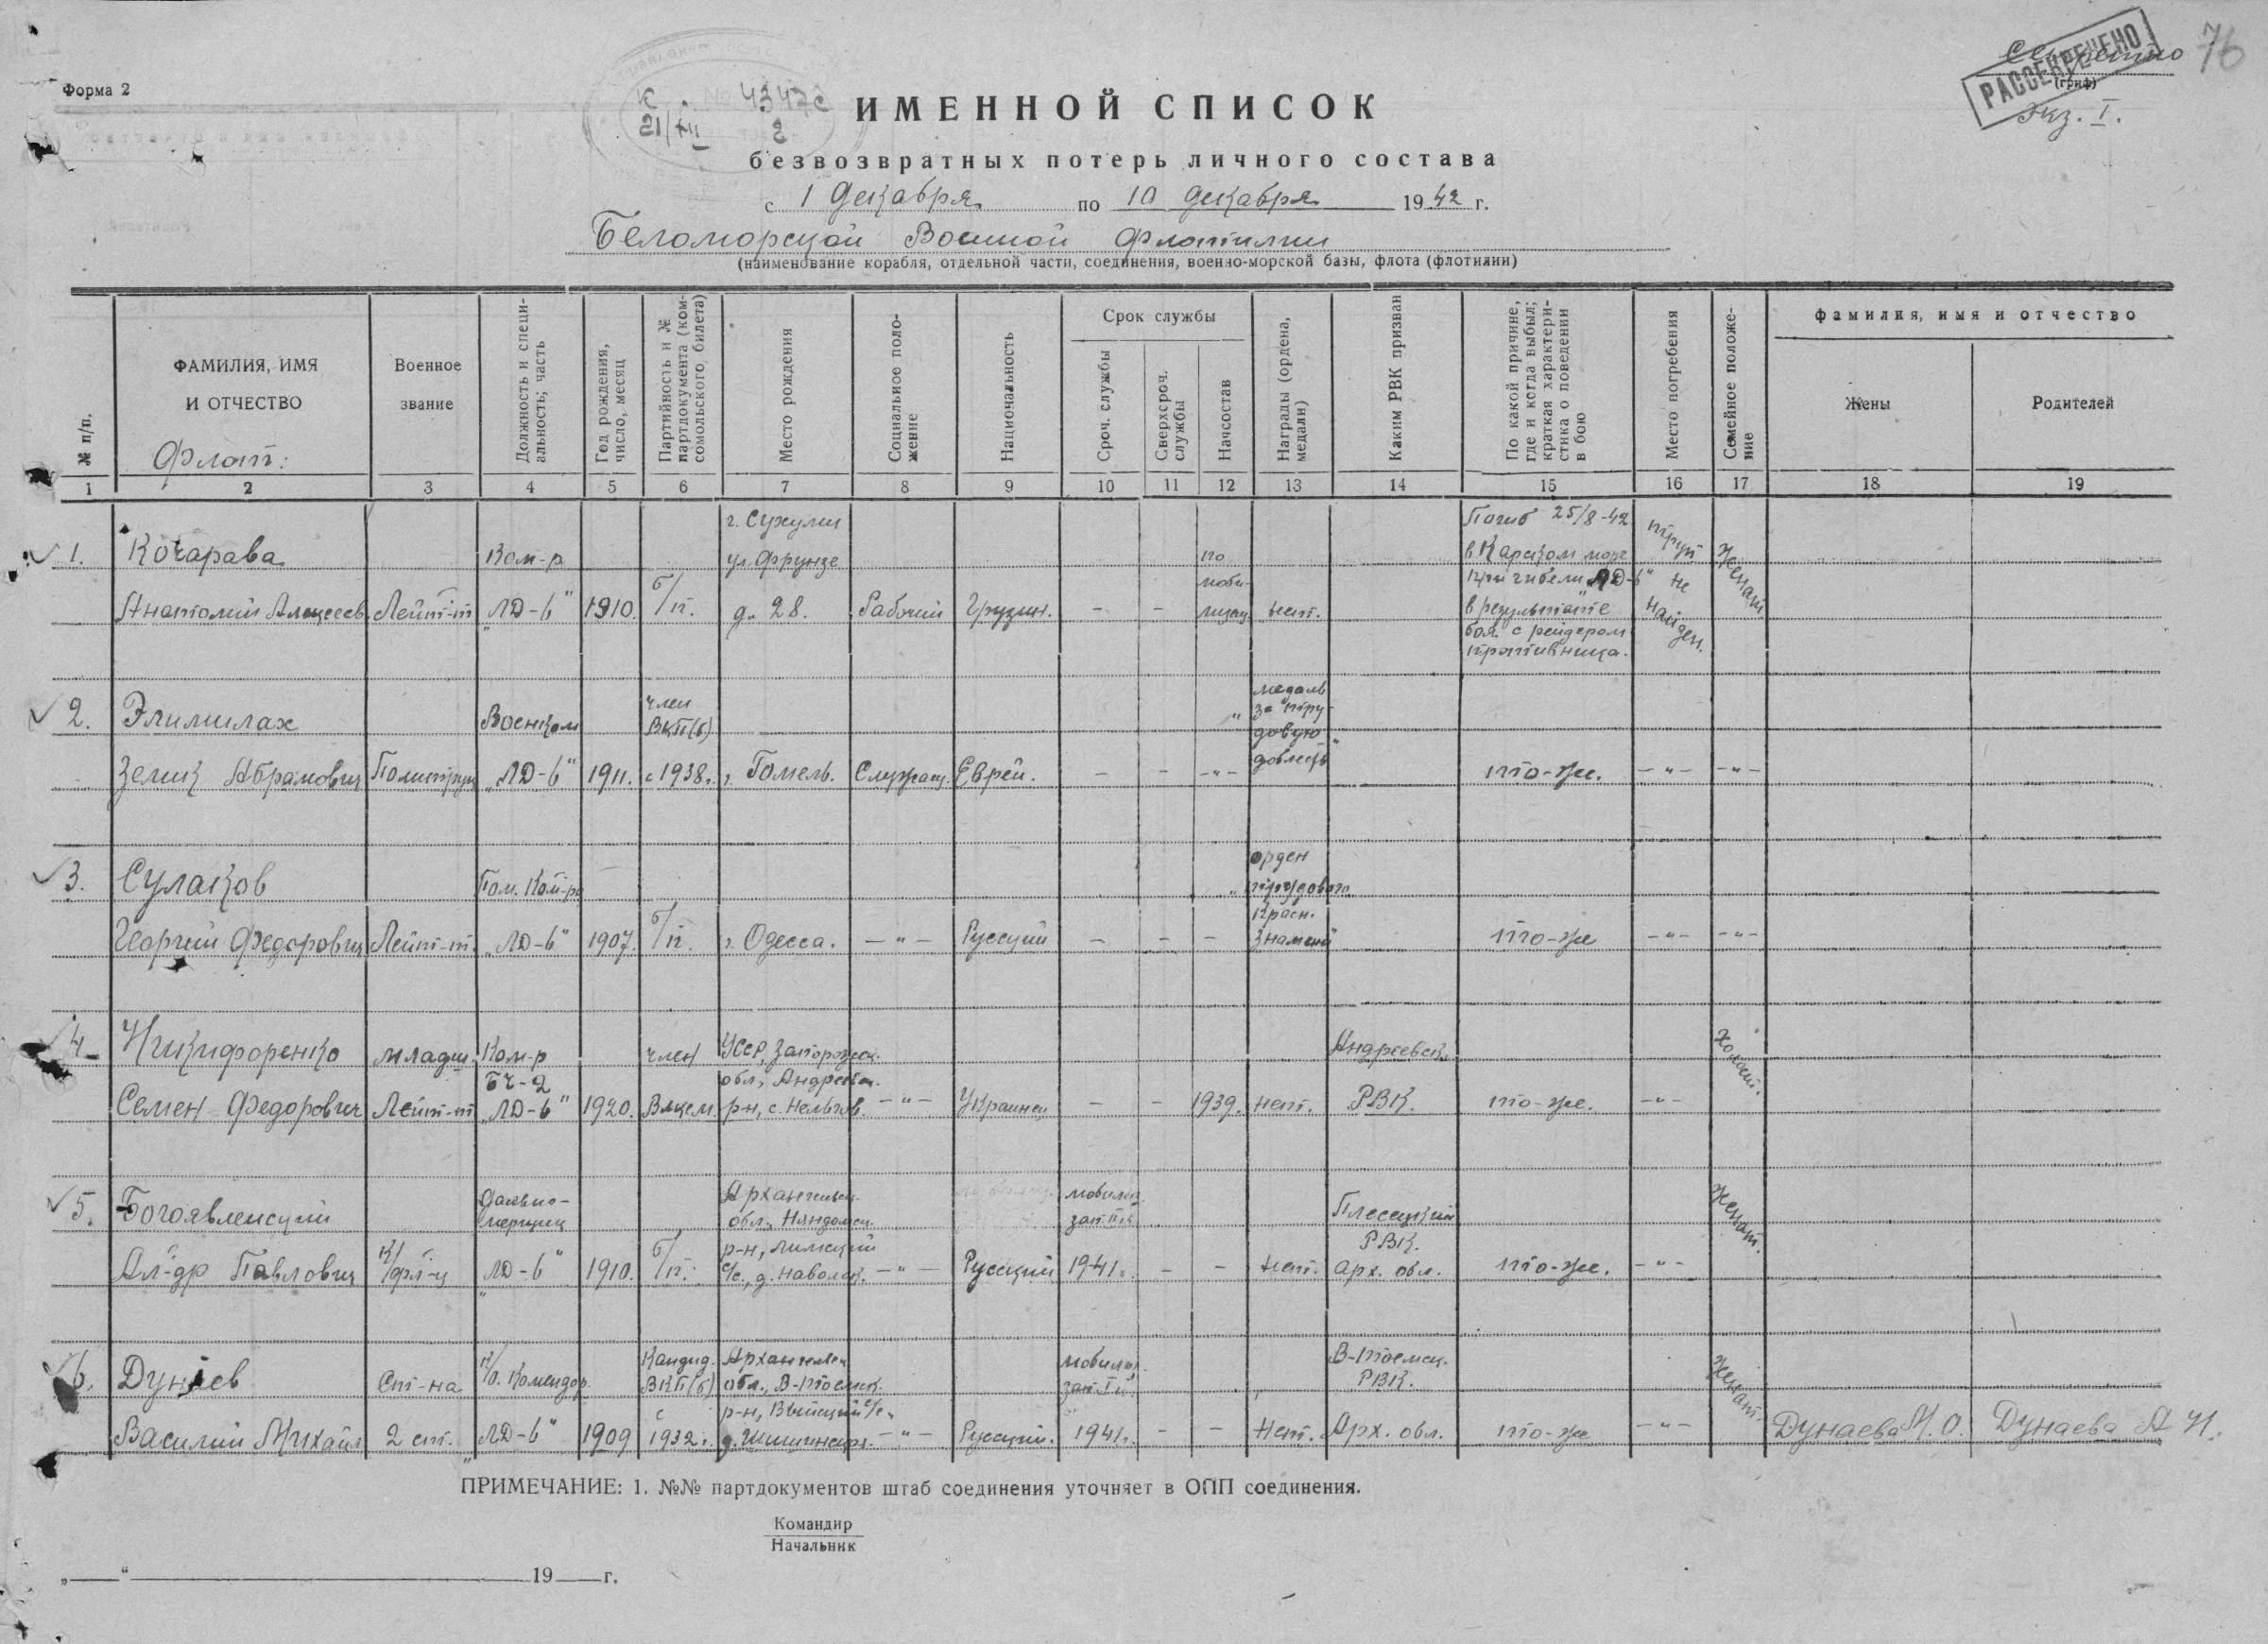 Форма 2
Секретно
76
РАССЕКРЕЧЕНО
(гриф)
Экз. I.
4347с
21/XII 2
ИМЕННОЙ СПИСОК
безвозвратных потерь личного состава
с 1 декабря по 10 декабря 1942 г.
Беломорской Военной Флотилии
(наименование корабля, отдельной части, соединения, военно-морской базы, флота (флотилии)
№ п/п.
ФАМИЛИЯ, ИМЯ И ОТЧЕСТВО
Флот:
Военное звание
Должность и специальность; часть
Год рождения, число, месяц
Партийность и № партдокумента (комсомольского билета)
Место рождения
Социальное положение
Национальность
Срок службы
Сроч. службы
Сверхсроч. службы
Начсостав
Награды (ордена, медали)
Каким РВК призван
По какой причине, где и когда выбыл; краткая характеристика о поведении в бою
Место погребения
Семейное положение
фамилия, имя и отчество
Жены
Родителей
1 2 3 4 5 6 7 8 9 10 11 12 13 14 15 16 17 18 19
1. Кочарава Анатолий Алексеев. Лейт-т Ком-р „ЛД-6" 1910. б/п. г. Сухуми ул. Фрунзе д. 28. Рабочий Грузин. - - по мобилизац. нет. Погиб 25/8-42 в Карском море при гибели „ЛД-6" в результате боя с рейдером противника. труп не найден. Женат.
2. Элимилах Зелик Абрамович Политрук Военком „ЛД-6" 1911. член ВКП(б) с 1938г. г. Гомель. Служащ. Еврей. - - -"- медаль „за трудовую доблесть" то-же. -"- -"-
3. Сулаков Георгий Федорович Лейт-т. Пом. Ком-ра „ЛД-6" 1907. б/п. г. Одесса. -"- Русский - - - орден „трудового Красн. Знамени" то-же -"- -"-
4. Никифоренко Семен Федорович младш. Лейт-т Ком-р БЧ-2 „ЛД-6" 1920. член Влксм. УССР, Запорожск. обл., Андреевск. р-н, с. -"- Украинец - - 1939. нет. Андреевск. РВК. то-же. -"- Холост.
5. Богоявленский Ал-др Павлович К/фл-ц Дальномерщик „ЛД-6" 1910. б/п. Архангельск. обл., Няндомск. р-н, Лимский с/с., д. Наволок. -"- Русский мобилиз. зап. 1941г. - - Нет. Плесецкий РВК. Арх. обл. то-же. -"- Женат.
6. Дунаев Василий Михайл. Ст-на 2 ст. К/о. Комендор „ЛД-6" 1909 Кандид. ВКП(б) с 1932г. Архангельск. обл., В-Тоемск. р-н, Выйский с/с., -"- Русский. мобилиз. зап. 1941г. - - Нет. В-Тоемск. РВК. Арх. обл. то-же -"- Женат. Дунаева М. О. Дунаева А И.
ПРИМЕЧАНИЕ: 1. №№ партдокументов штаб соединения уточняет в ОПП соединения.
Командир
Начальник
„ " 19 г.